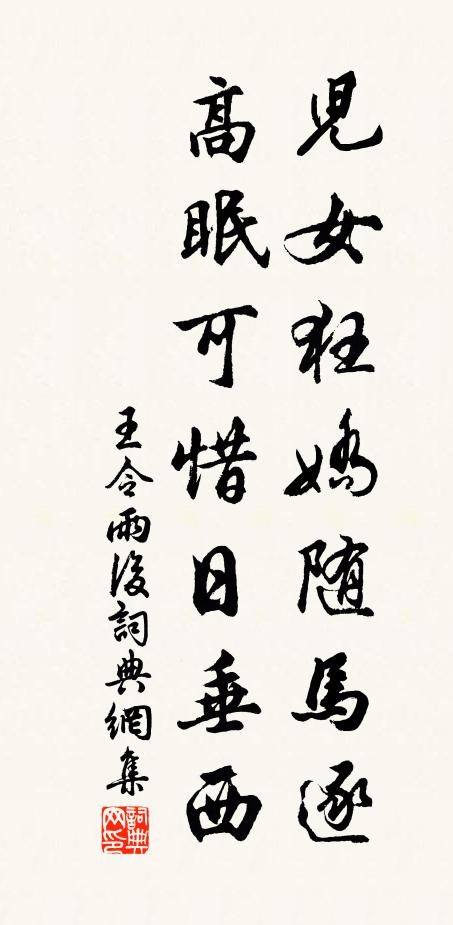 兒女狂嬌随馬逐
高眠可惜日垂西
王令雨後詞典網集
詞典網印